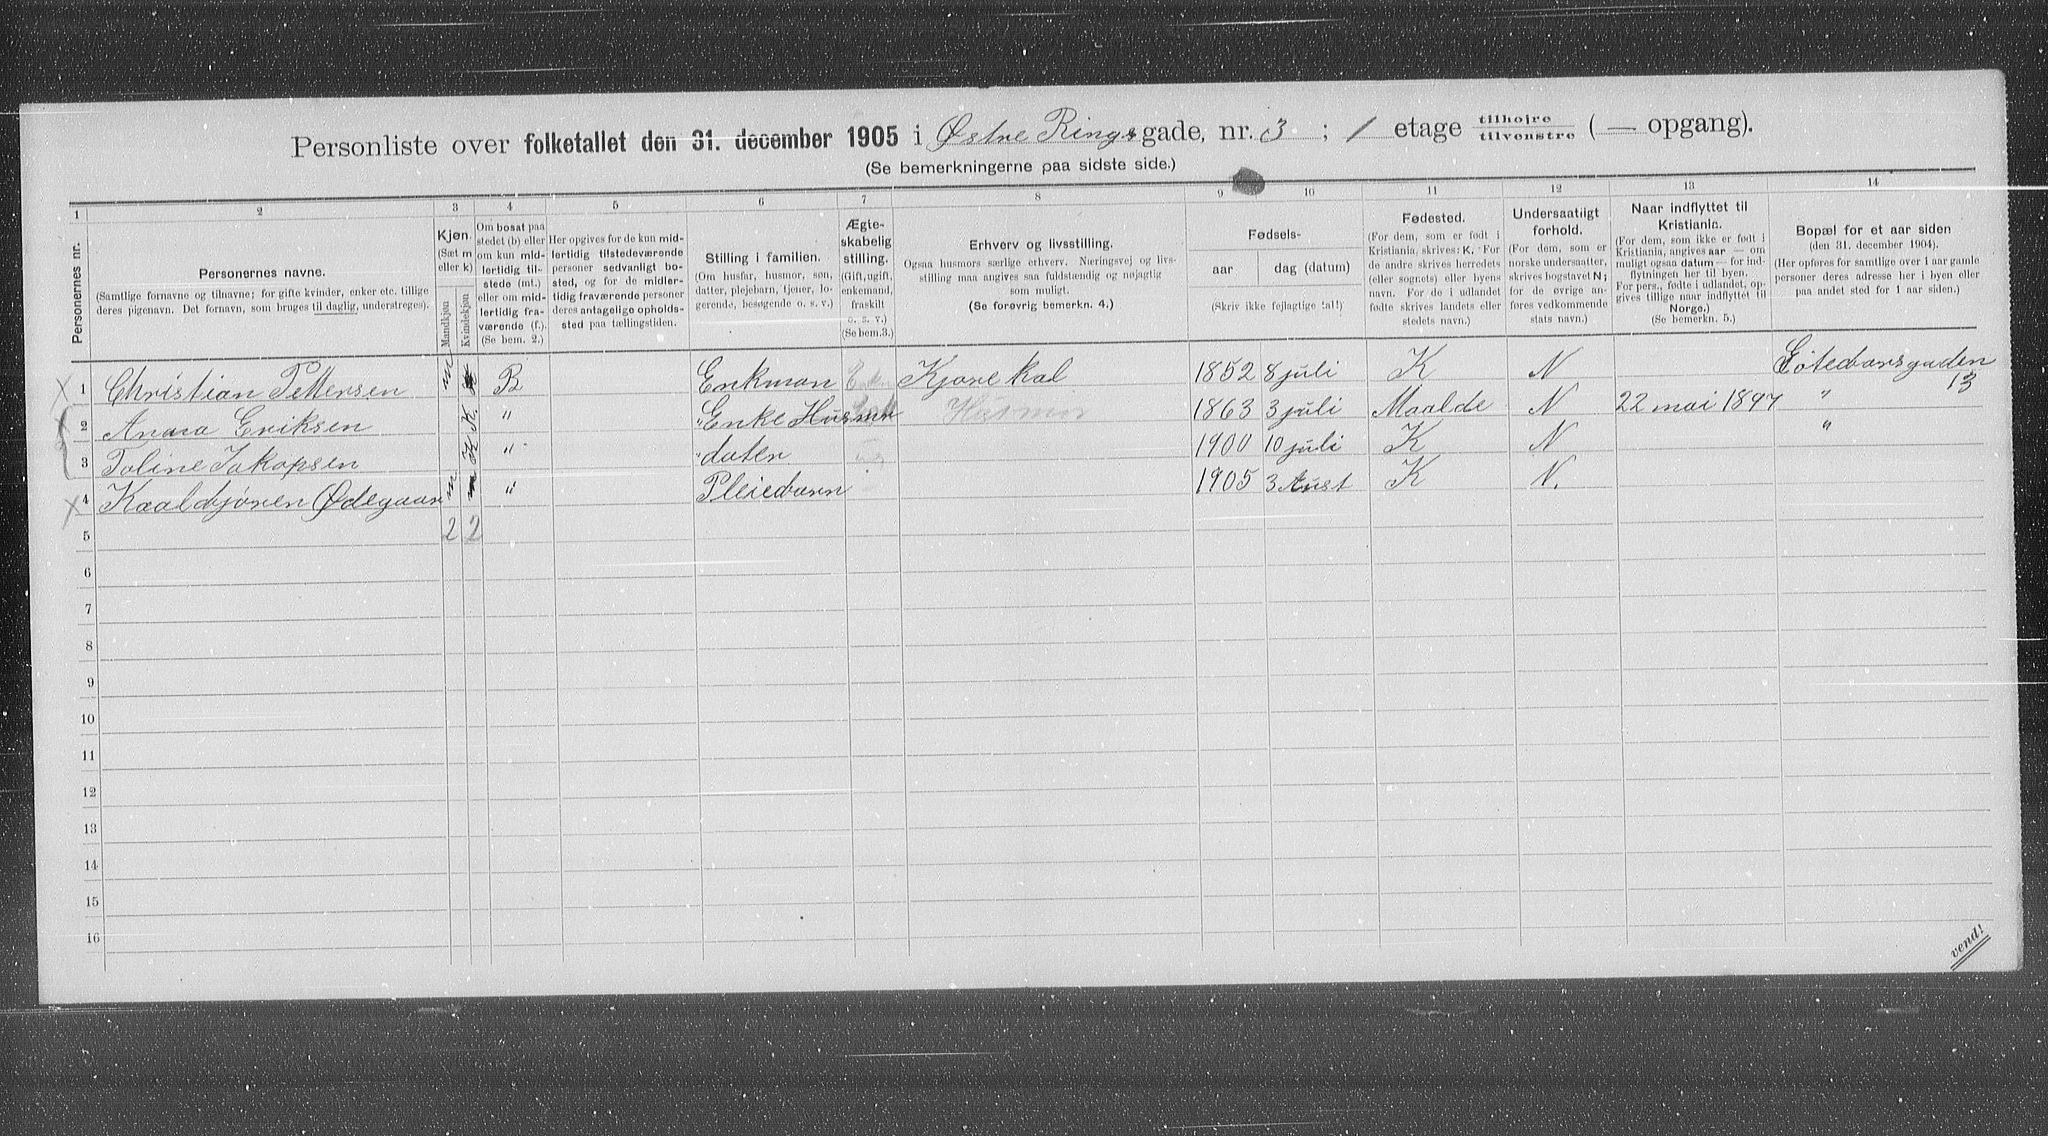 Personliste over folketallet den 31. december 1905 i Østre Rings gade, nr. 3 ; 1 etage tilhøjre tilvenstre ( — opgang).
(Se bemerkningerne paa sidste side.)
1 2 3 4 5 6 7 8 9 10 11 12 13 14
Personernes nr.
Personernes navne.
(Samtlige fornavne og tilnavne; for gifte kvinder, enker etc. tillige
deres pigenavn. Det fornavn, som bruges til daglig, understreges).
Kjøn.
(Sæt m
eller k)
Mandkjøn
Kvindekjøn
Om bosat paa
stedet (b) eller
om kun mid-
lertidig til-
stede (mt.)
eller om mid-
lertidig fra-
værende (f.).
(Se bem. 2.)
Her opgives for de kun mid-
lertidig tilstedeværende
personer sedvanligt bo-
sted, og for de midler-
tidig fraværende personer
deres antagelige opholds-
sted paa tællingstiden.
Stilling i familien.
(Om husfar, husmor, søn,
datter, plejebarn, tjener, lo-
gerende, besøgende o. s. v.)
Ægte-
skabelig
stilling.
(Gift, ugift,
enkemand,
fraskilt
o. s. v.)
(Se bem.3.)
Erhverv og livsstilling.
Ogsaa husmors særlige erhverv. Næringsvej og livs-
stilling maa angives saa fuldstændig og nøjagtig
som muligt.
(Se forøvrig bemerkn. 4.)
Fødsels-
aar dag (datum)
(Skriv ikke fejlagtige tal!)
Fødested.
(For dem, som er født i
Kristiania, skrives: K. For
de andre skrives herredets
(eller sognets) eller byens
navn. For de i udlandet
fødte skrives landets eller
stedets navn.)
Undersaatligt
forhold.
(For dem, som er
norske undersaatter,
skrives bogstavet N;
for de øvrige an-
føres vedkommende
stats navn.)
Naar indflyttet til
Kristiania.
(For dem, som ikke er født i
Kristiania, angives aar — om
muligt ogsaa datum — for ind-
flytningen her til byen.
For pers., fødte i udlandet, op-
gives tillige naar indflyttet til
Norge.)
(Se bemerkn. 5.)
Bopæl for et aar siden
(den 31. december 1904).
(Her opføres for samtlige over 1 aar gamle
personer deres adresse her i byen eller
paa andet sted for 1 aar siden.)
1 Christian Pettersen m B Enkman Kjørekal 1852 8 juli K N Gøteborsgaden 13
2 Anna Eriksen K. " Enke Husmor Husmor 1863 3 juli Maalde N 22 mai 1897 "
3 Toline Jakopsen K " dater 1900 10 juli K N "
4 Kaaldbjønen (Ødegaar m " Pleiebarn 1905 3 Aust K N.
5 2 2
6
7
8
9
10
11
12
13
14
15
16
vend!